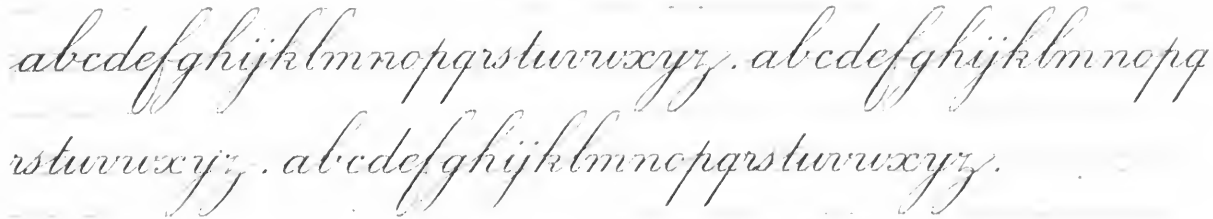 abcdefghijklmnopqrstuvwxyz. abcdefghijklmnopq
rstuvwxyz. abcdefghijklmnopqrstuvwxyz.